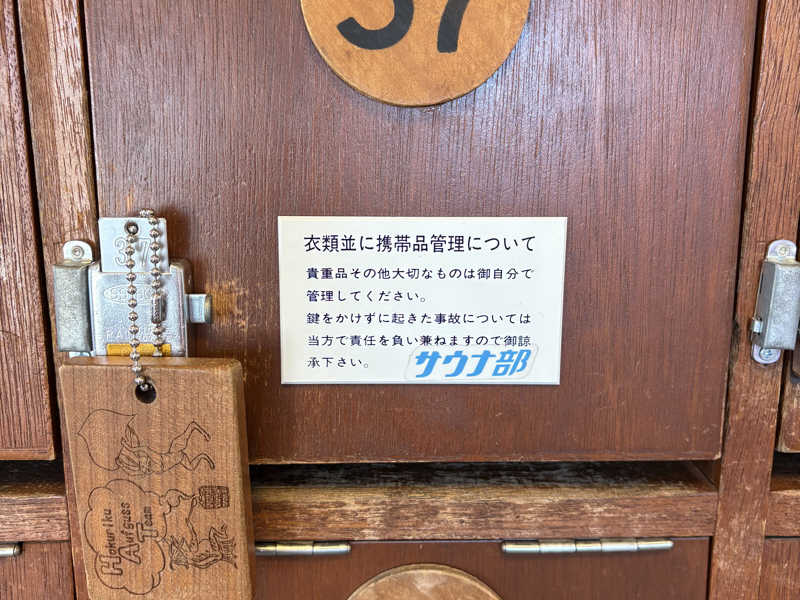 37
37
衣類並に携帯品管理について
貴重品その他大切なものは御自分で
管理してください。
鍵をかけずに起きた事故については
当方で責任を負い兼ねますので御諒
承下さい。
サウナ部
Hokuriku
Aufguss
Team